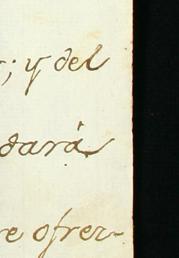 ; y del
dará
re ofrez-